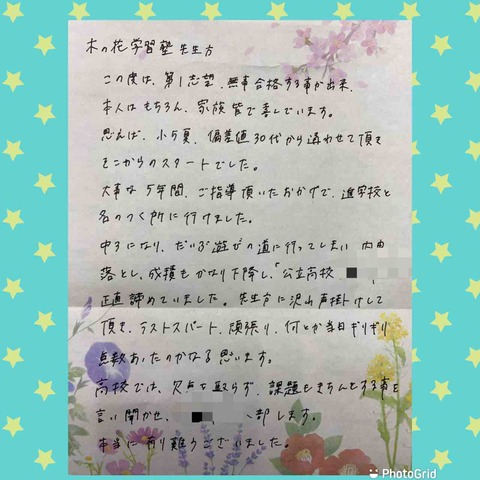 木の花学習塾 先生方
この度は、第1志望、無事合格する事が出来、
本人はもちろん、家族皆で喜んでいます。
思えば、小5夏、偏差値30代から通わせて頂き
そこからのスタートでした。
大事な5年間、ご指導頂いたおかげで、進学校と
名のつく所に行けました。
中3になり、だいぶ遊びの道に行ってしまい 内申
落とし、成績もかなり下降し、「公立高校
正直諦めていました。先生方に沢山声掛けして
頂き、ラストスパート、頑張り、何とか当日ギリギリ
点数あったのかなと思います。
高校では、欠点を取らず、課題もきちんとする事を
言い聞かせ、 部します。
本当に有り難うございました。
PhotoGrid